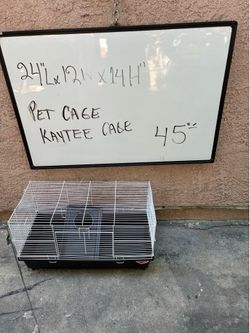 24"L x 12W x 14H"
PET CAGE
KAYTEE CAGE 45⁰⁰